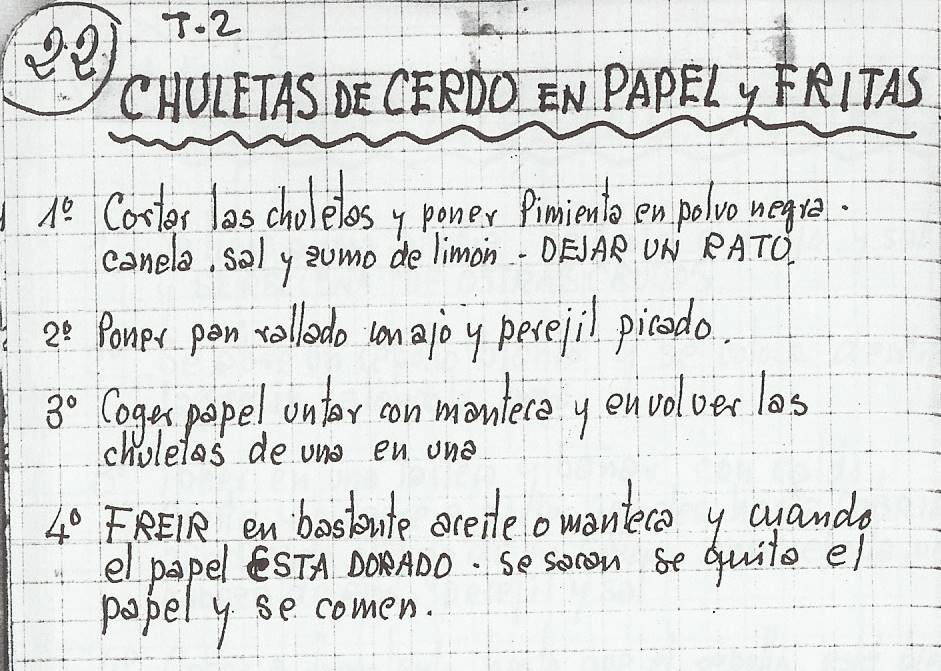 22 T.2
CHULETAS DE CERDO EN PAPEL y FRITAS
1º Cortar las chuletas y poner Pimienta en polvo negra.
canela, sal y zumo de limón - DEJAR UN RATO.
2º Poner pan rallado con ajo y perejil picado.
3º Coger papel untar con manteca y envolver las
chuletas de una en una
4º FREIR en bastante aceite o manteca y cuando
el papel ESTA DORADO. se sacan se quita el
papel y se comen.